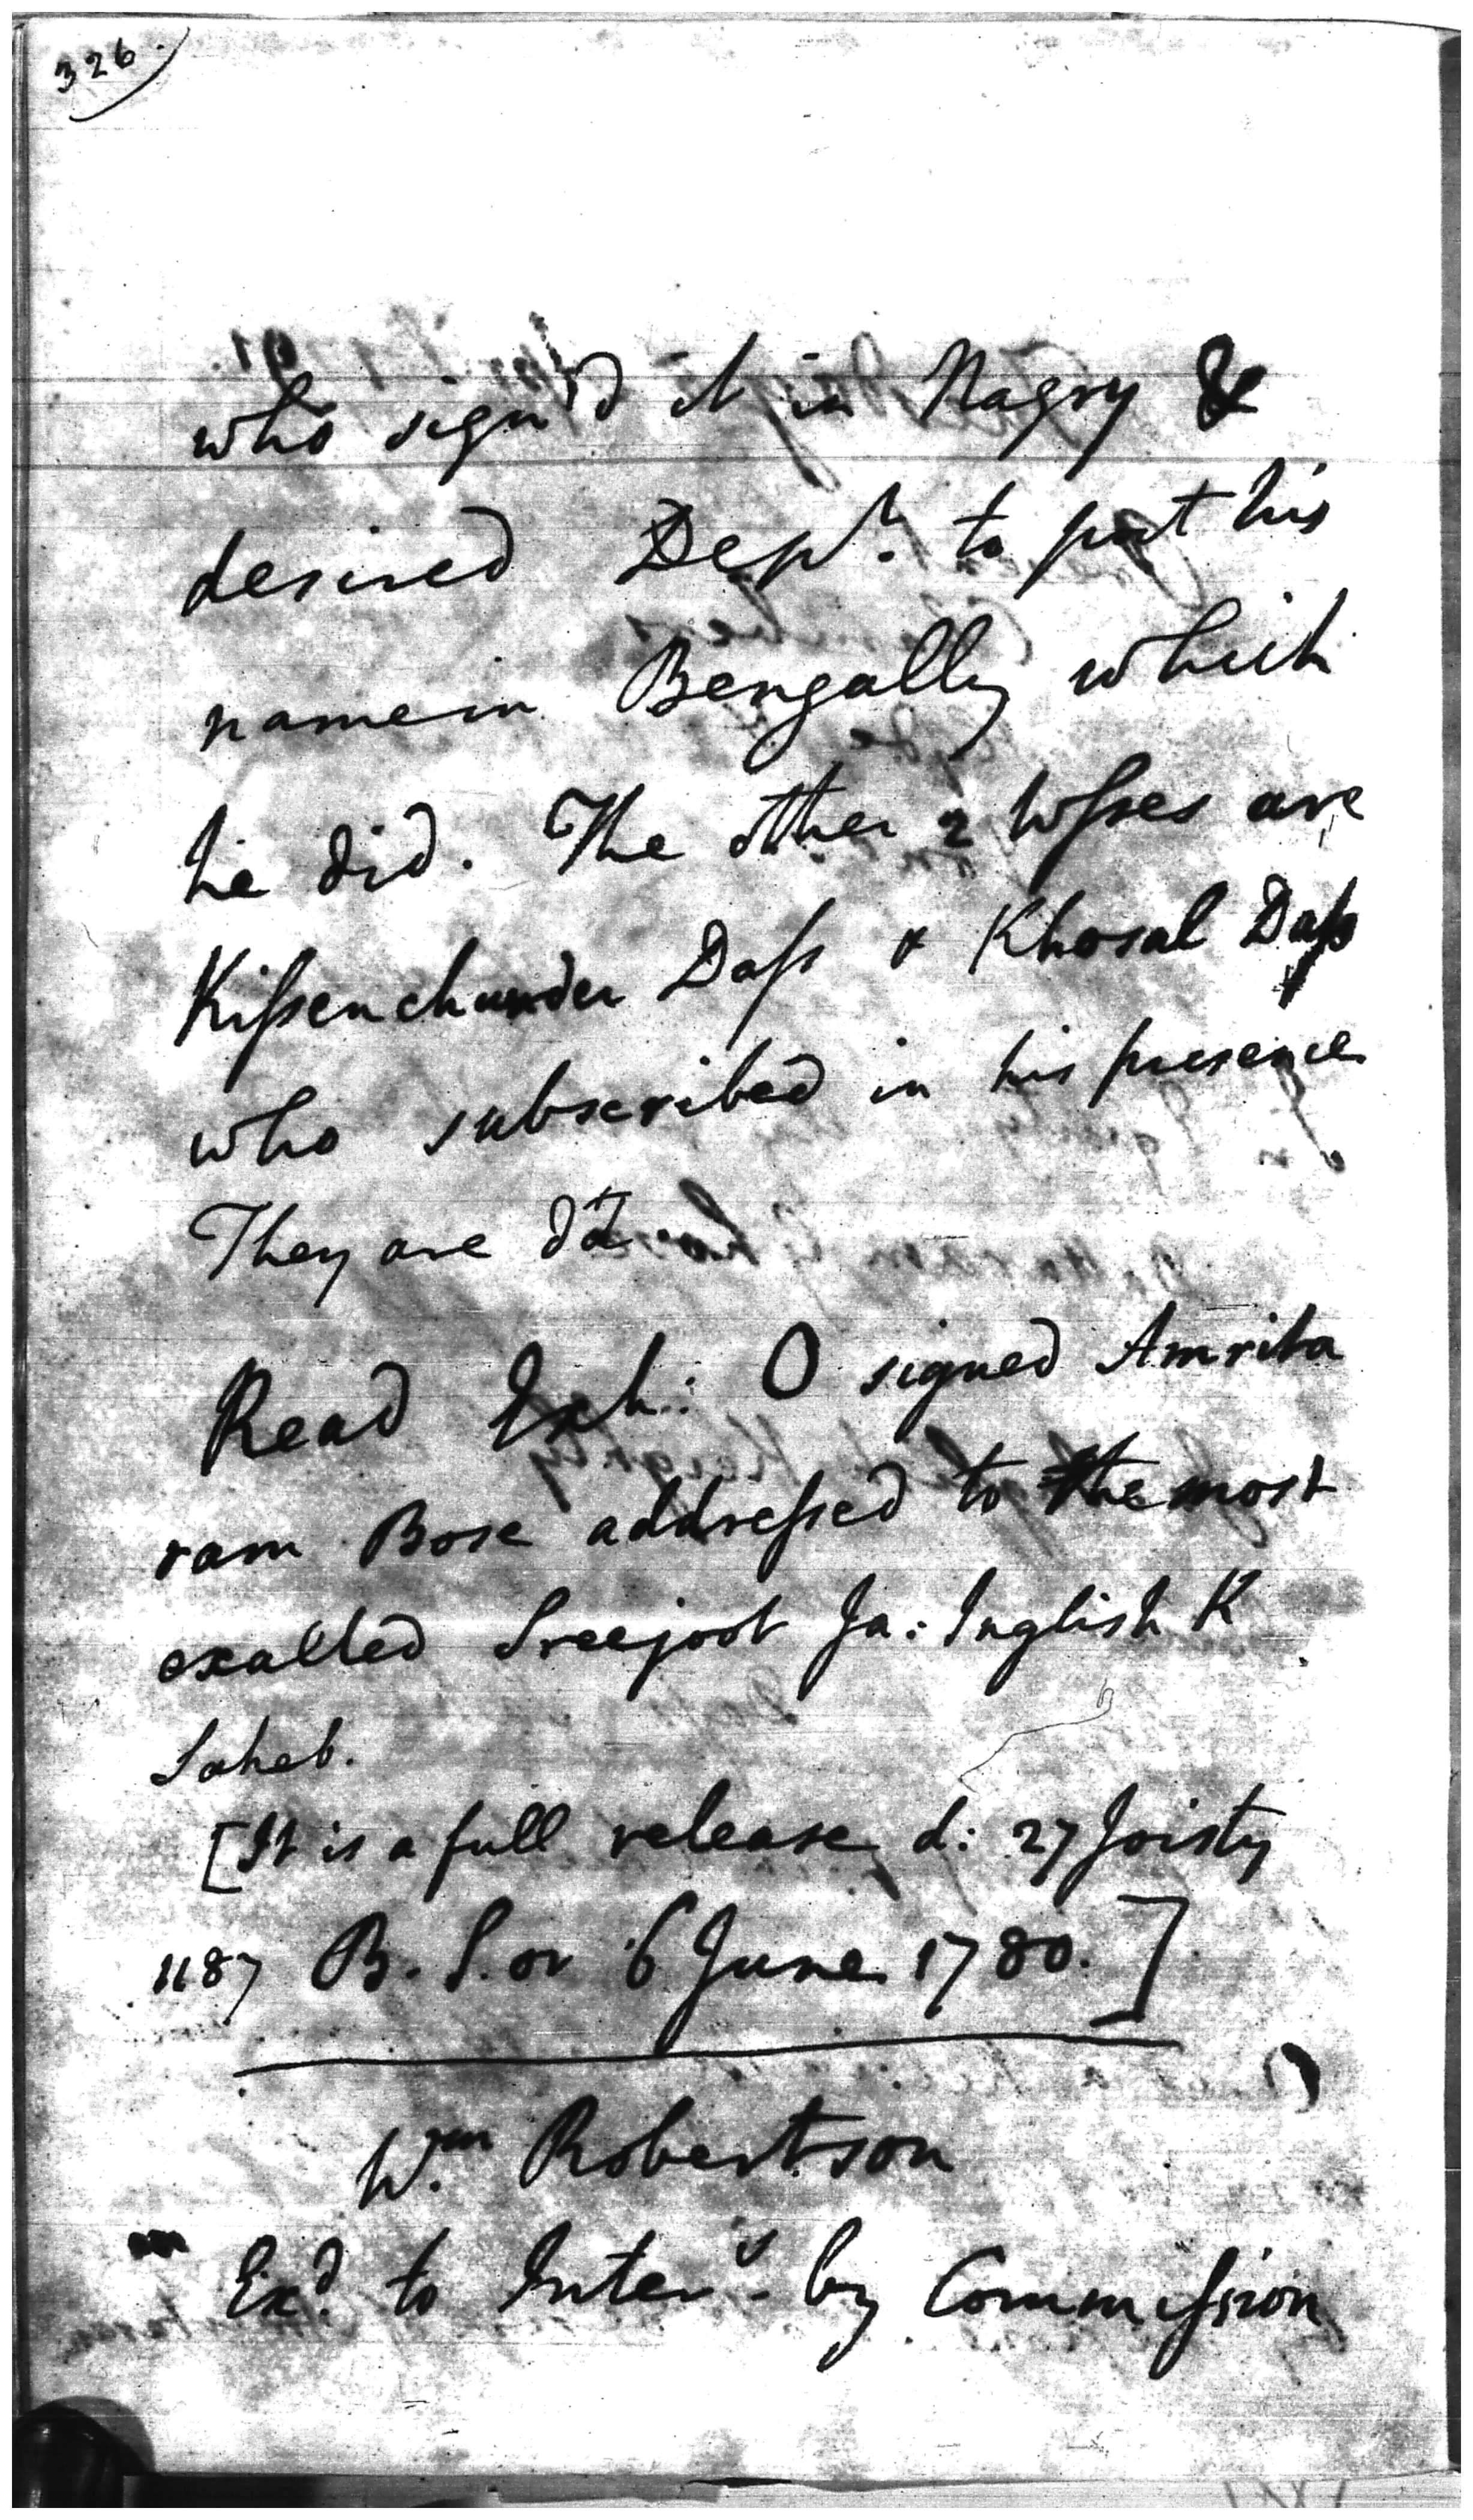 326.
who sign'd it in Nagry &
desired Dept. to put his
name in Bengally which
he did. The other 2 Wsses are
Kissenchunder Dass & Khosal Dass
who subscribed in his presence
They are dd
Read Exh: O signed Amrita
ram Bose addressed to the most
exalted Sreejoot Ja: Inglish K
Saheb.
[It is a full release d: 27 Joisty
1187 B. S. or 6 June 1780.]
Wm Robertson
Exd. to Inter's by Commission